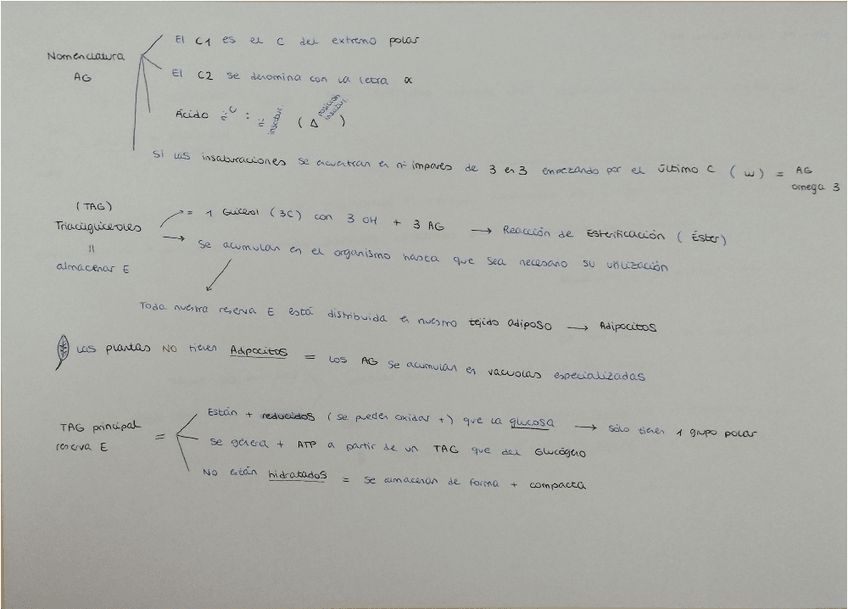 El C1 es el C del extremo polar
Nomenclatura
AG
El C2 se denomina con la letra α
Ácido nº C : nº insatur. (Δ posición insatur.)
Si las insaturaciones se encuentran en nº impares de 3 en 3 empezando por el último C (ω) = AG omega 3
(TAG)
Triacilgliceroles
=
almacenar E
= 1 Glicerol (3C) con 3 OH + 3 AG → Reacción de Esterificación (Éster)
→ Se acumulan en el organismo hasta que sea necesario su utilización
Toda nuestra reserva E está distribuida en nuestro tejido adiposo → Adipocitos
Las plantas NO tienen Adipocitos = los AG se acumulan en vacuolas especializadas
TAG principal
reserva E
=
Están + reducidos (se pueden oxidar +) que la glucosa → sólo tienen 1 grupo polar
Se genera + ATP a partir de un TAG que del Glucógeno
No están hidratados = se almacenan de forma + compacta